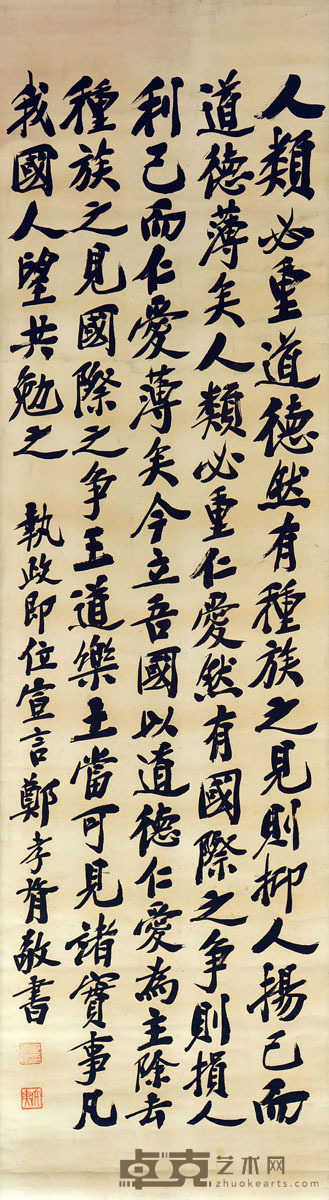 人類必重道德然有種族之見則抑人揚己而
道德薄矣人類必重仁愛然有國際之爭則損人
利己而仁愛薄矣今立吾國以道德仁愛為主除去
種族之見國際之爭王道樂土當可見諸實事凡
我國人望共勉之
執政即位宣言鄭孝胥敬書
卓克艺术网
zhuokearts.com